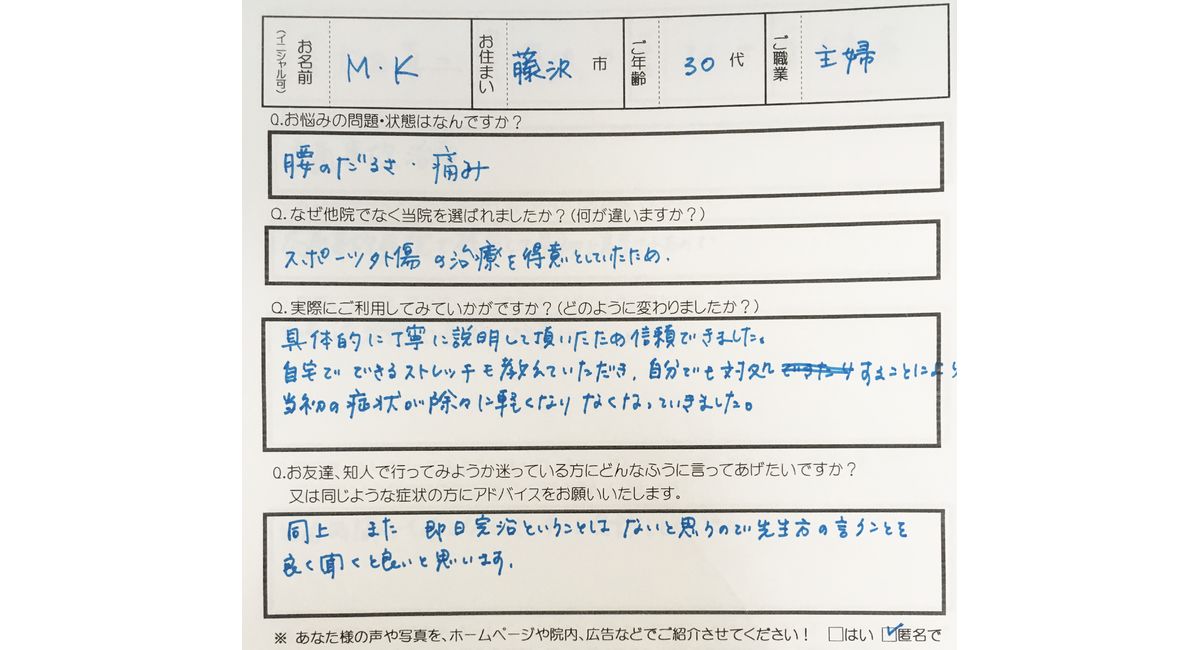 お名前 (イニシャル可) M・K お住まい 藤沢 市 ご年齢 30 代 ご職業 主婦
Q.お悩みの問題・状態はなんですか？
腰のだるさ・痛み
Q.なぜ他院でなく当院を選ばれましたか？(何が違いますか？)
スポーツ外傷の治療を得意としていたため.
Q.実際にご利用してみていかがですか？(どのように変わりましたか？)
具体的に丁寧に説明して頂いたため信頼できました。
自宅でできるストレッチも教えていただき、自分でも対処できたりすることにより
当初の症状が除々に軽くなりなくなっていきました。
Q.お友達、知人で行ってみようか迷っている方にどんなふうに言ってあげたいですか？
又は同じような症状の方にアドバイスをお願いいたします。
同上 また 即日完治ということはないと思うので先生方の言うことを
良く聞くと良いと思います.
※ あなた様の声や写真を、ホームページや院内、広告などでご紹介させてください！ □はい ☑匿名で